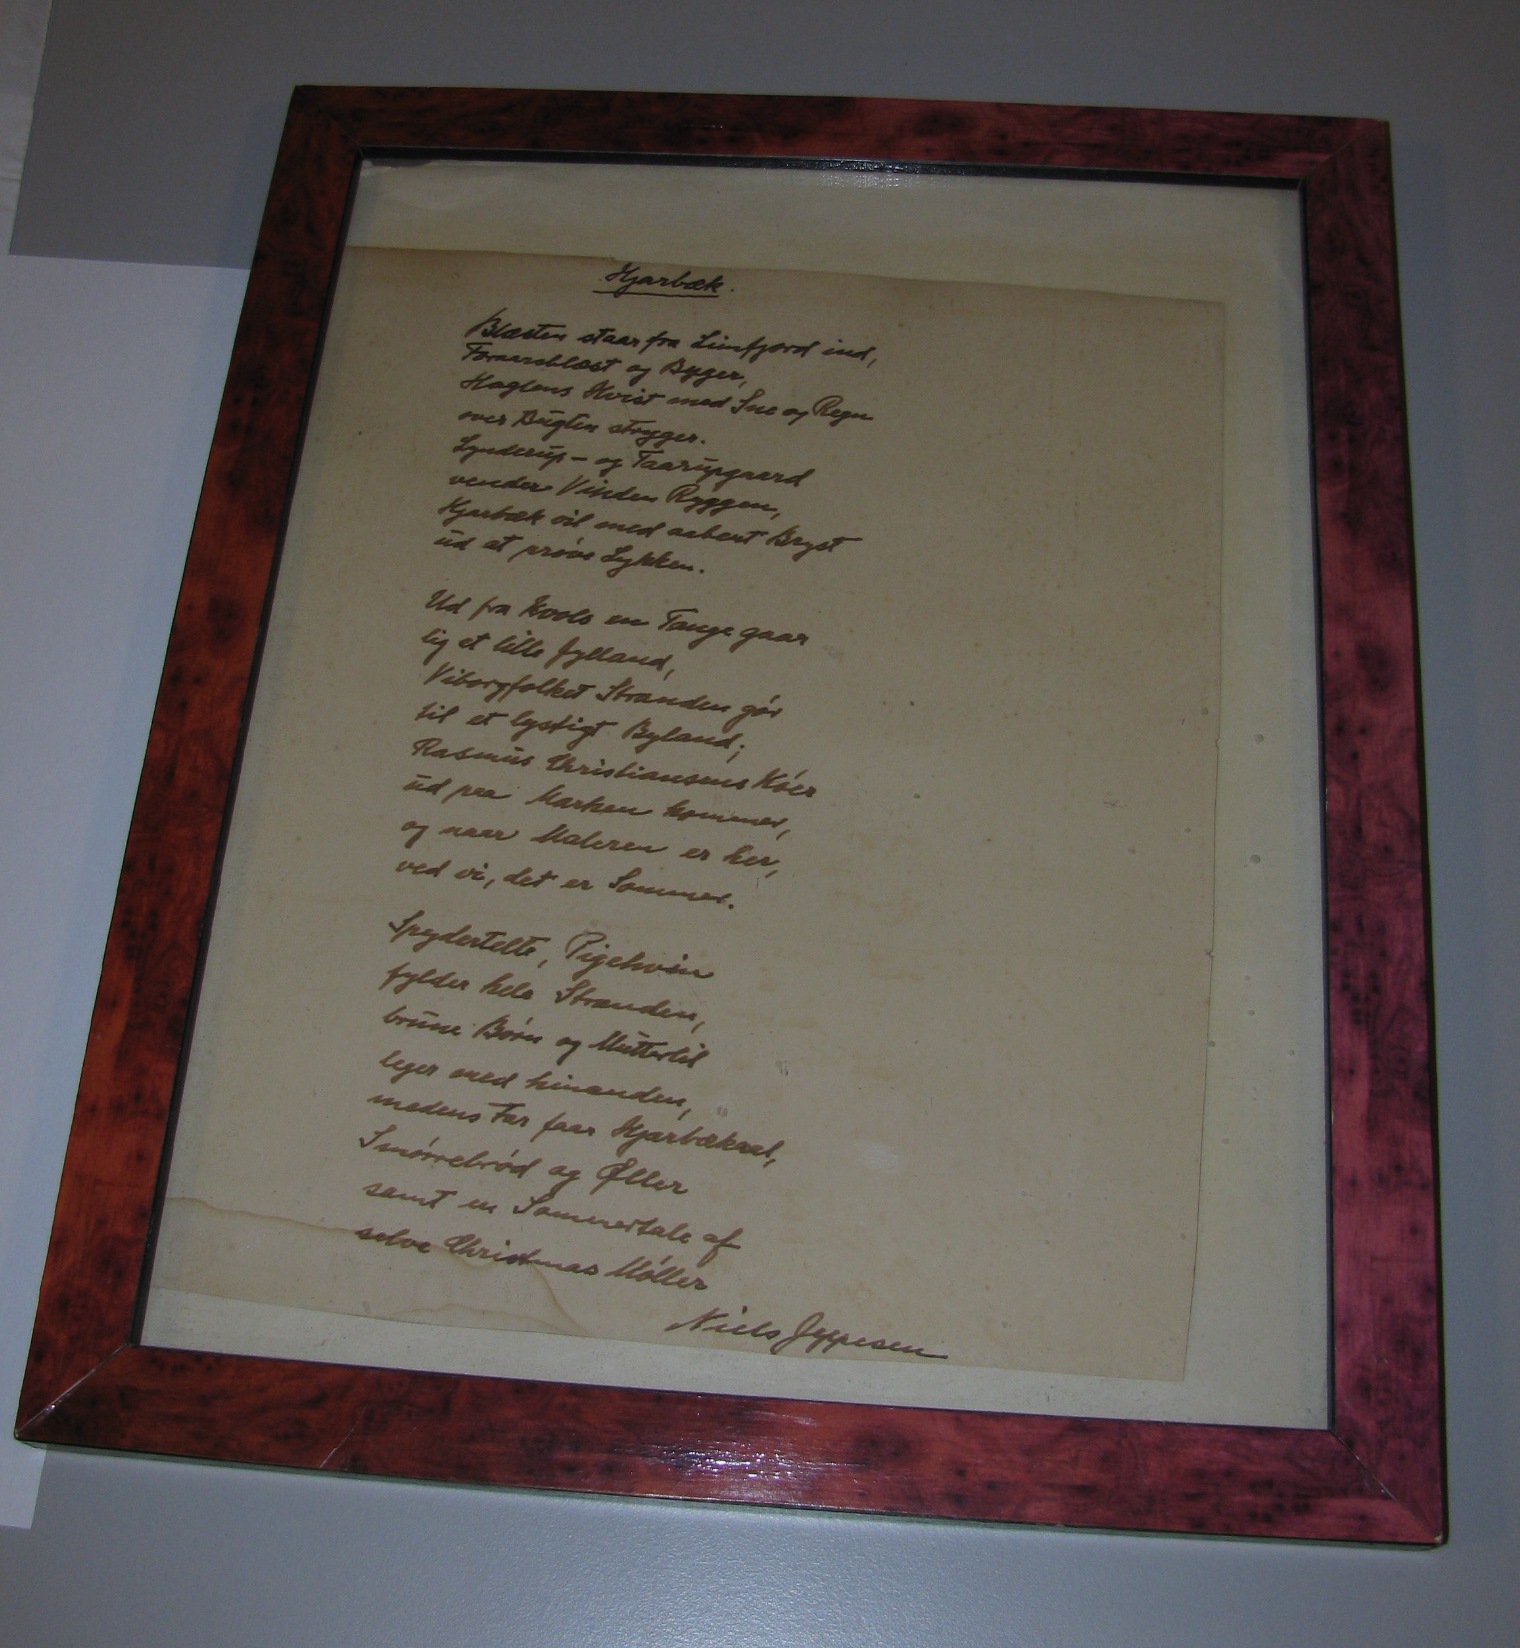 Hjarbæk.
Blæsten staar fra Limfjord ind,
Foraarsblæst og Byger,
Haglens Hvist med Sne og Regn
over Bugten stryger.
Lynderup- og Taarupgaard
vender Vinden Ryggen,
Hjarbæk vil med aabent Bryst
ud at prøve Lykken.
Ud fra Kvols en Tange gaar
lig et lille Jylland,
Viborgfolket Stranden gór
til et lystigt Byland;
Rasmus Christiansens Kóer
ud paa Marken kommer,
og naar Maleren er her,
ved vi, det er Sommer.
Spydertelte, Pigehvin
fylder hele Stranden,
brune Börn og Mutterlil
leger med hinanden,
medens Far faar Hjarbækaal,
Smórrebród og Øller
samt en Sommertale af
selve Christmas Móller
Niels Jeppesen